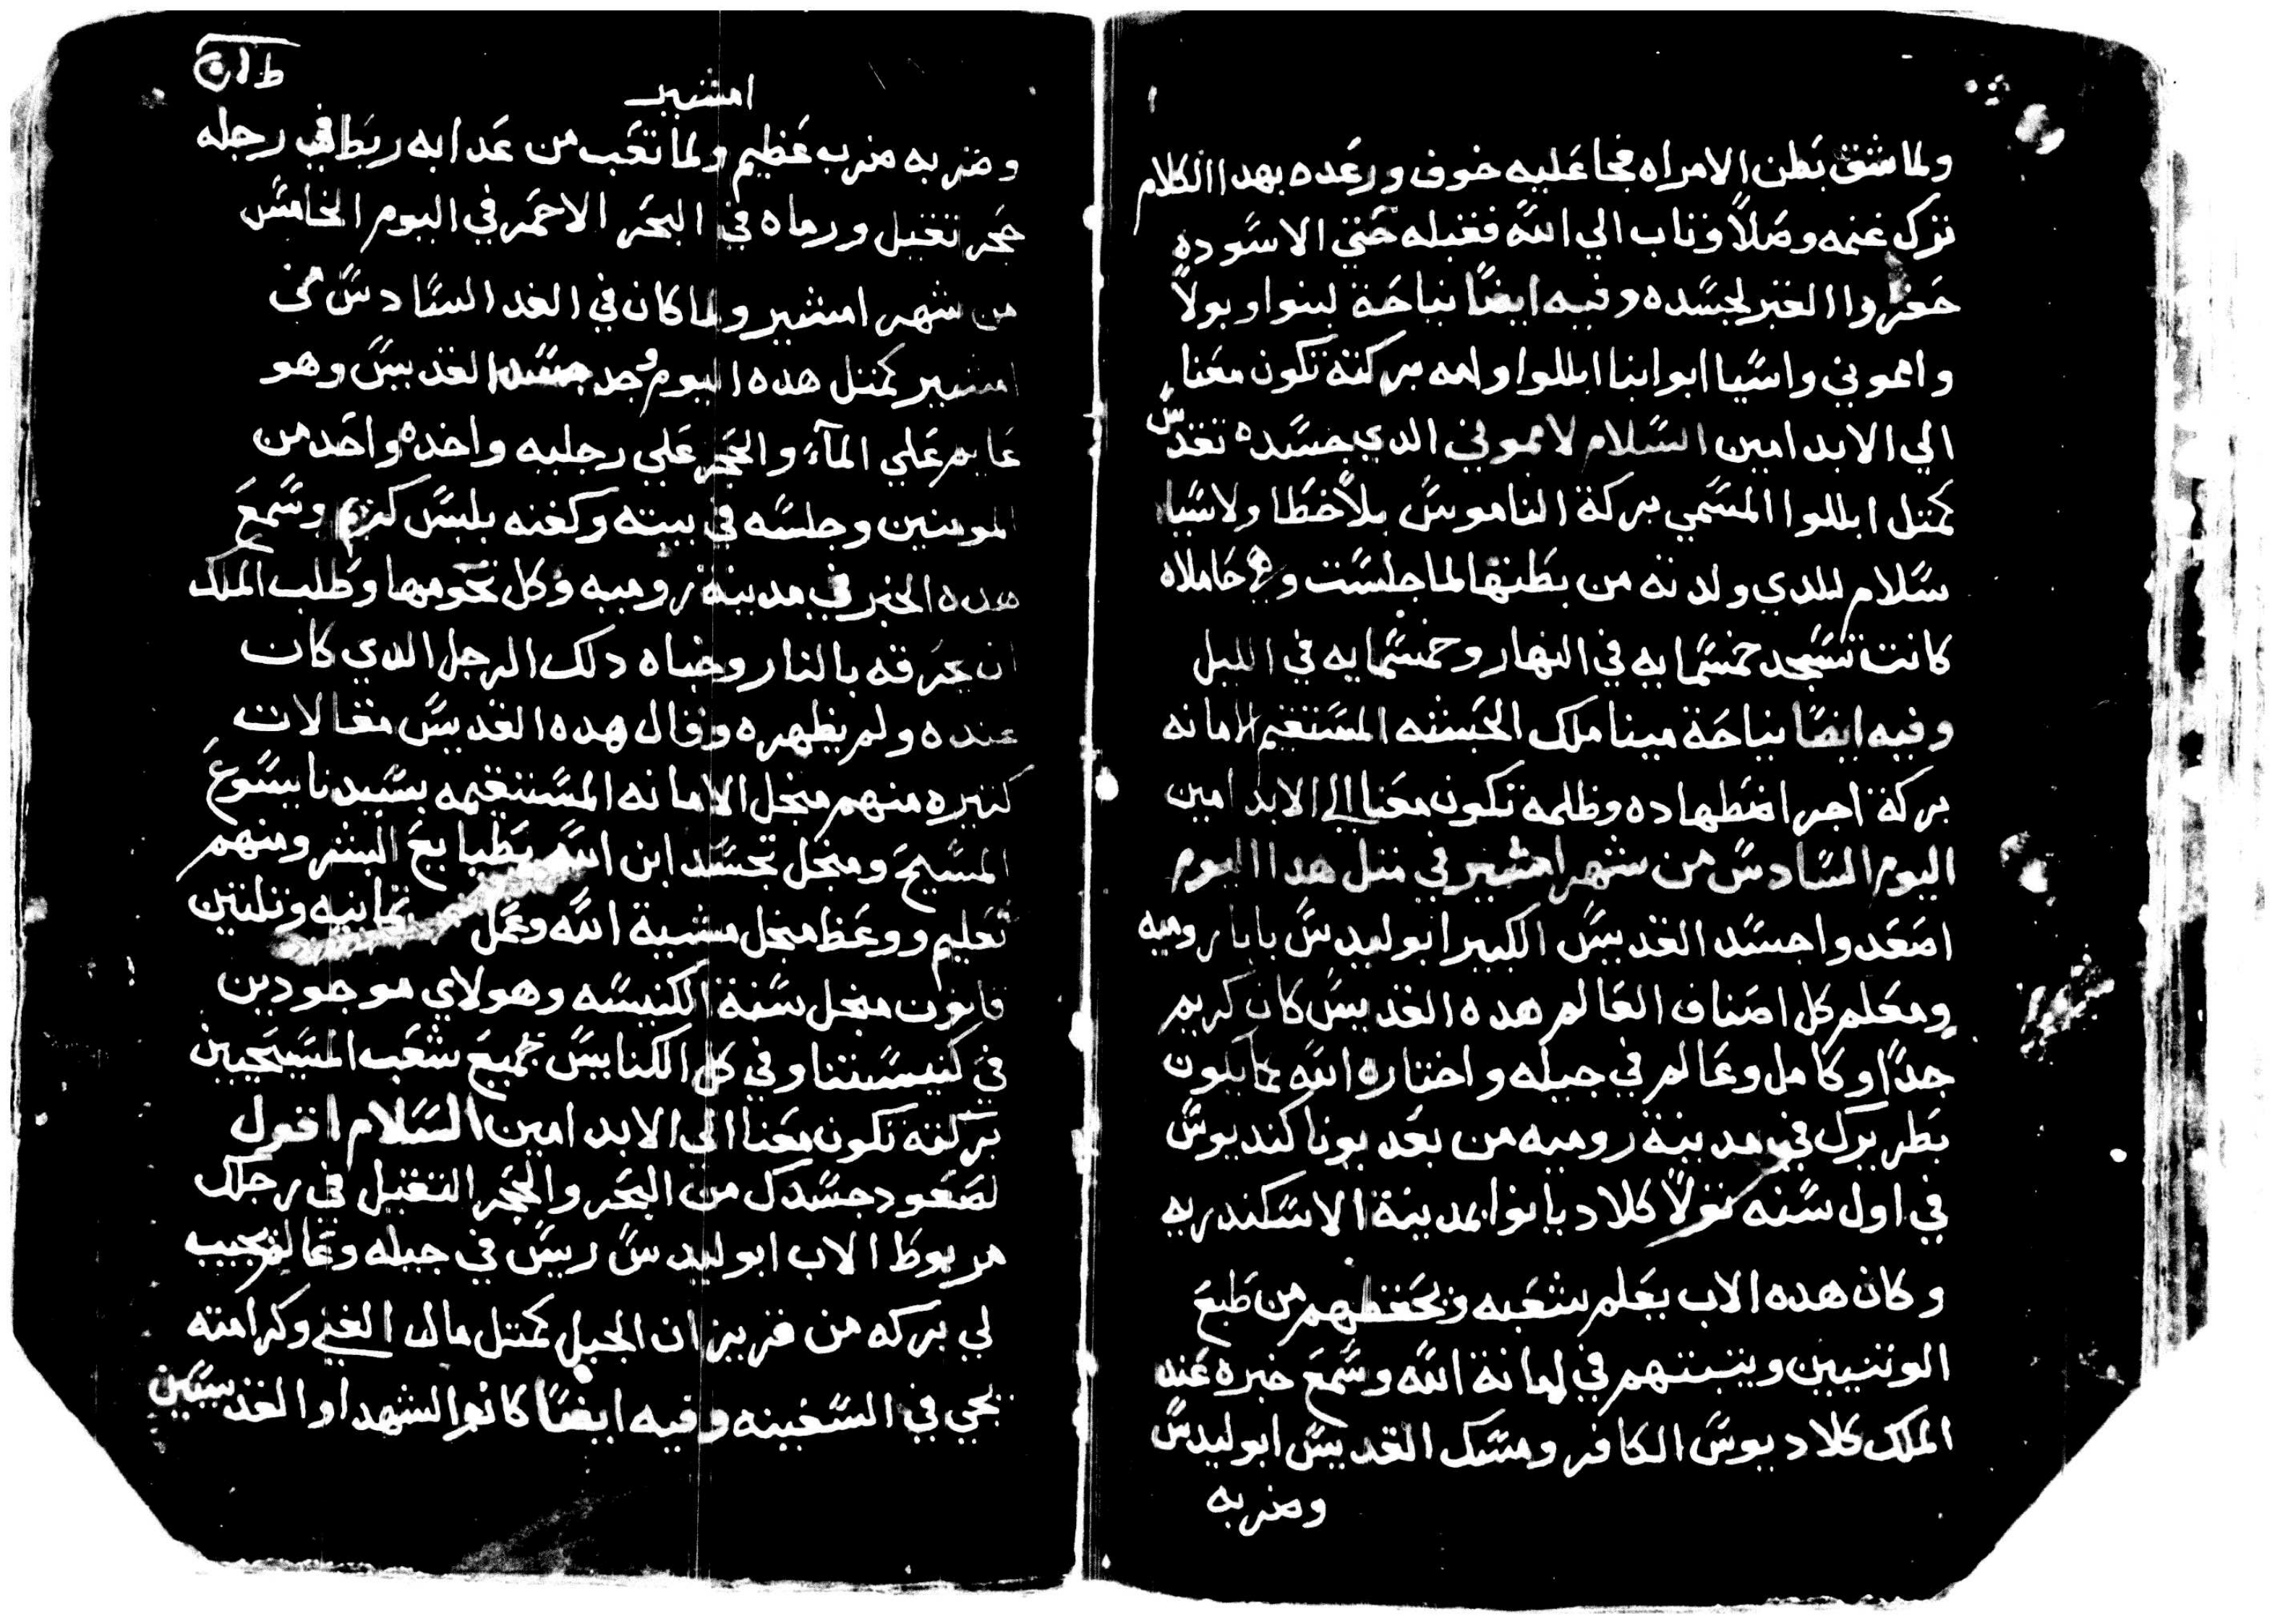 ولما شقق بطن الامراه فجا عليه خوف ورعده بهدا الكلام
ترك غنمه وصلاً وتاب الي الله فقبله حتي الاسوده
حفروا القبر لجسده وفيه ايضا نياحة لبنوا وبولا
واممونى واسيا ابوا انبا ابللوا وامه بركته تكون معنا
الي الابد امين السلام لاممونى الدي جسده تقدس
كمتل ابللوا المسمي بركة الناموس بلا خطا ولاسيا
سلام للدي ولدته من بطنها لما جلست وهي حاملاه
كانت تسجد خمسمايه في النهار وخمسمايه في الليل
وفيه ايضا نياحة مينا ملك الحبشه المستقيم الامانه
بركة اجر اضطهاده وظلمة تكون معنا الي الابد امين
اليوم السادس من شهر امشير في متل هدا اليوم
اصعدوا جسد القديس الكبير ابوليدس بابا روميه
ومعلم كل اصناف العالم هده القديس كان كريم
جدا وكامل وعالم في جيله واختاره الله بما يكون
بطريرك في مدينة روميه من بعد يونا كنديوس
في اول سنه كلاديانوا بمدينة الاسكندريه
وكان هده الاب يعلم شعبه ويحفظهم من طبع
الوتنيين ويتبتهم في امانة الله وسمع خبره عند
الملك كلاديوس الكافر ومسك القديس ابوليدس
وضربه
امشير
وضربه ضرب عظيم ولما تعب من عدابه ربط في رجله
حجر تقيل ورماه في البحر الاحمر في اليوم الخامس
من شهر امشير ولما كان في الغد السادس من
امشير كمتل هده اليوم وجد جسد القديس وهو
عايم علي المآء والحجر علي رجليه واخده واحد من
المومنين وجلسه في بيته وكفنه بلبس كريم وسمع
هده الخبر في مدينة روميه وكل تخومها وطلب الملك
ان يحرقه بالنار وخباه دلك الرجل الدي كان
عنده ولم يظهره وقال هده القديس مقالات
كتيره منهم منجل الامانه المستقيمه بسيدنا يسوع
المسيح ومنجل تجسد ابن الله بطبايع البشر ومنهم
تعليم ووعظ منجل مشية الله وعمل تمانيه وتلتين
قانون منجل سنة الكنيسه وهولاي موجودين
في كنيستنا وفي كل الكنايس جميع شعب المسيحيين
بركته تكون معنا الي الابد امين السلام اقول
لصعود جسدك من البحر والحجر التقيل في رجلك
مربوط الاب ابوليدس ريس في جيله وعالم يجيب
لي بركه من قربان الجبل كمتل مال الغني وكرامته
تجي في السفينه وفيه ايضا كانوا الشهدا والقديسين